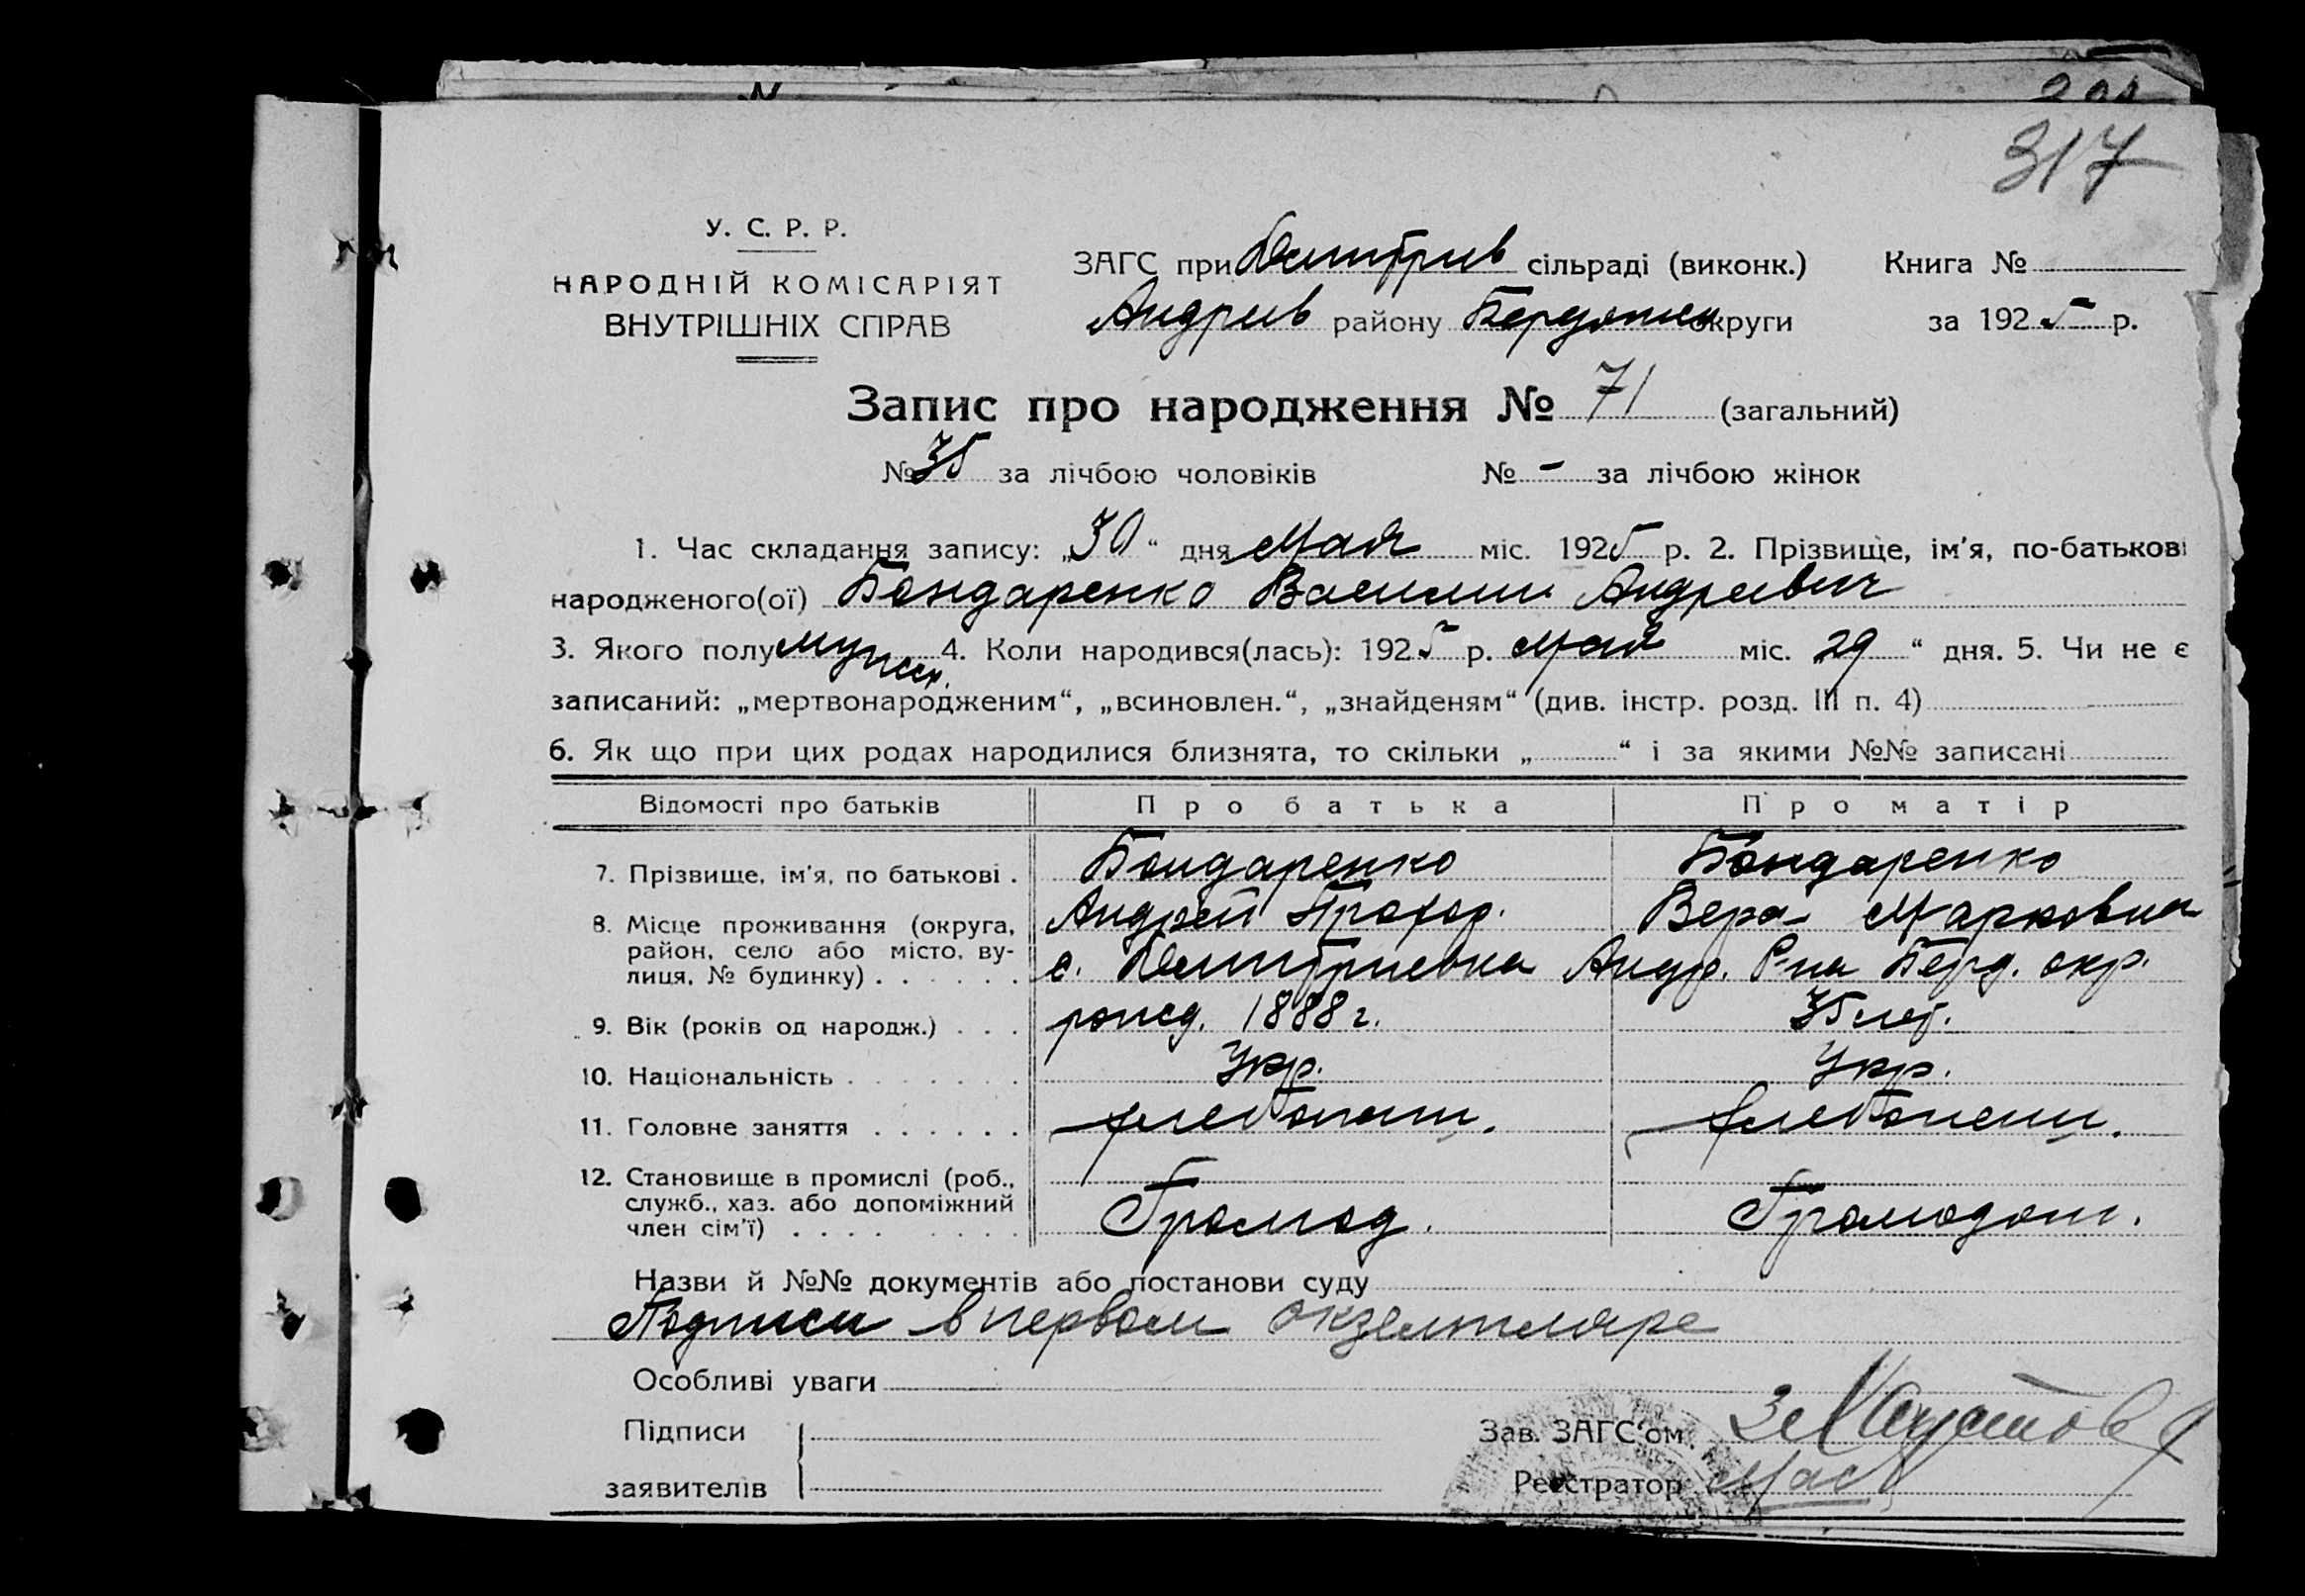 317
У. С. Р. Р.
НАРОДНІЙ КОМІСАРІЯТ
ВНУТРІШНІХ СПРАВ
ЗАГС при Дмитрив сільраді (виконк.) Книга №
Андрив району Бердянск округи за 1925 р.
Запис про народження № 71 (загальний)
№ 35 за лічбою чоловіків № - за лічбою жінок
1. Час складання запису: „30“ дня Мая міс. 1925 р. 2. Прізвище, ім'я, по-батькові
народженого(ої) Бондаренко Василий Андреевич
3. Якого полу мужск. 4. Коли народився(лась): 1925 р. Мая міс. „29“ дня. 5. Чи не є
записаний: „мертвонародженим“, „всиновлен.“, „знайденям“ (див. інстр. розд. III п. 4)
6. Як що при цих родах народилися близнята, то скільки „ “ і за якими №№ записані
Відомості про батьків Про батька Про матір
7. Прізвище, ім'я, по батькові . Бондаренко Бондаренко
Андрей Прохор. Вера Марковна
8. Місце проживання (округа,
район, село або місто, ву-
лиця, № будинку) . . . . . . с. Дмитриевка Андр. Р-на Берд. окр.
9. Вік (років од народж.) . . . рожд. 1888 г. 35 лет.
10. Національність . . . . . . . Укр. Укр.
11. Головне заняття . . . . . . хлебопаш. хлебопаш.
12. Становище в промислі (роб.,
служб., хаз. або допоміжний
член сім'ї) . . . . . . . . Громад. Громадан.
Назви й №№ документів або постанови суду
Подписи в первом экземпляре
Особливі уваги
Підписи
заявителів
Зав. ЗАГС'ом
Реєстратор